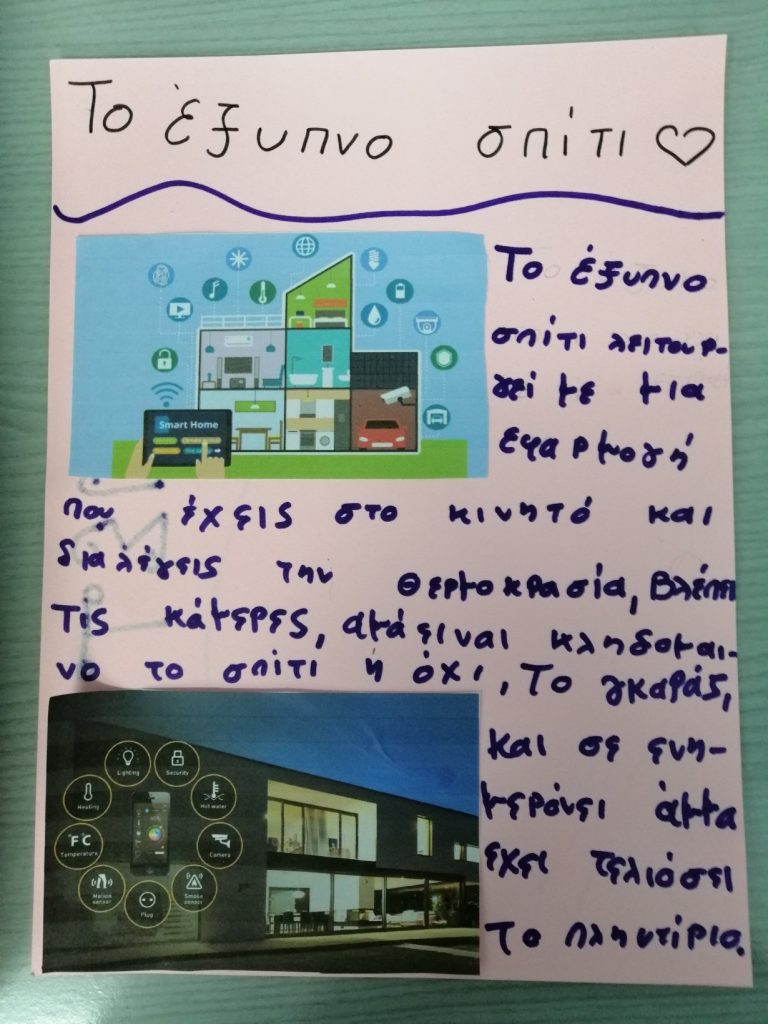 Το έξυπνο σπίτι
Smart Home
Το έξυπνο
σπίτι λειτουρ-
γεί με μια
εφαρμογή
που έχεις στο κινητό και
διαλέγεις την θερμοκρασία, βλέπεις
τις κάμερες, αμά ειναι κληδομαι-
νο το σπίτι η όχι, το γκαράζ,
και σε ενη-
μερόνει άμα
έχει τελιόσει
το πληντίριο.
Lighting
Security
Heating
Hot water
°F °C
Temperature
Camera
Motion
sensor
Smoke
sensor
Plug